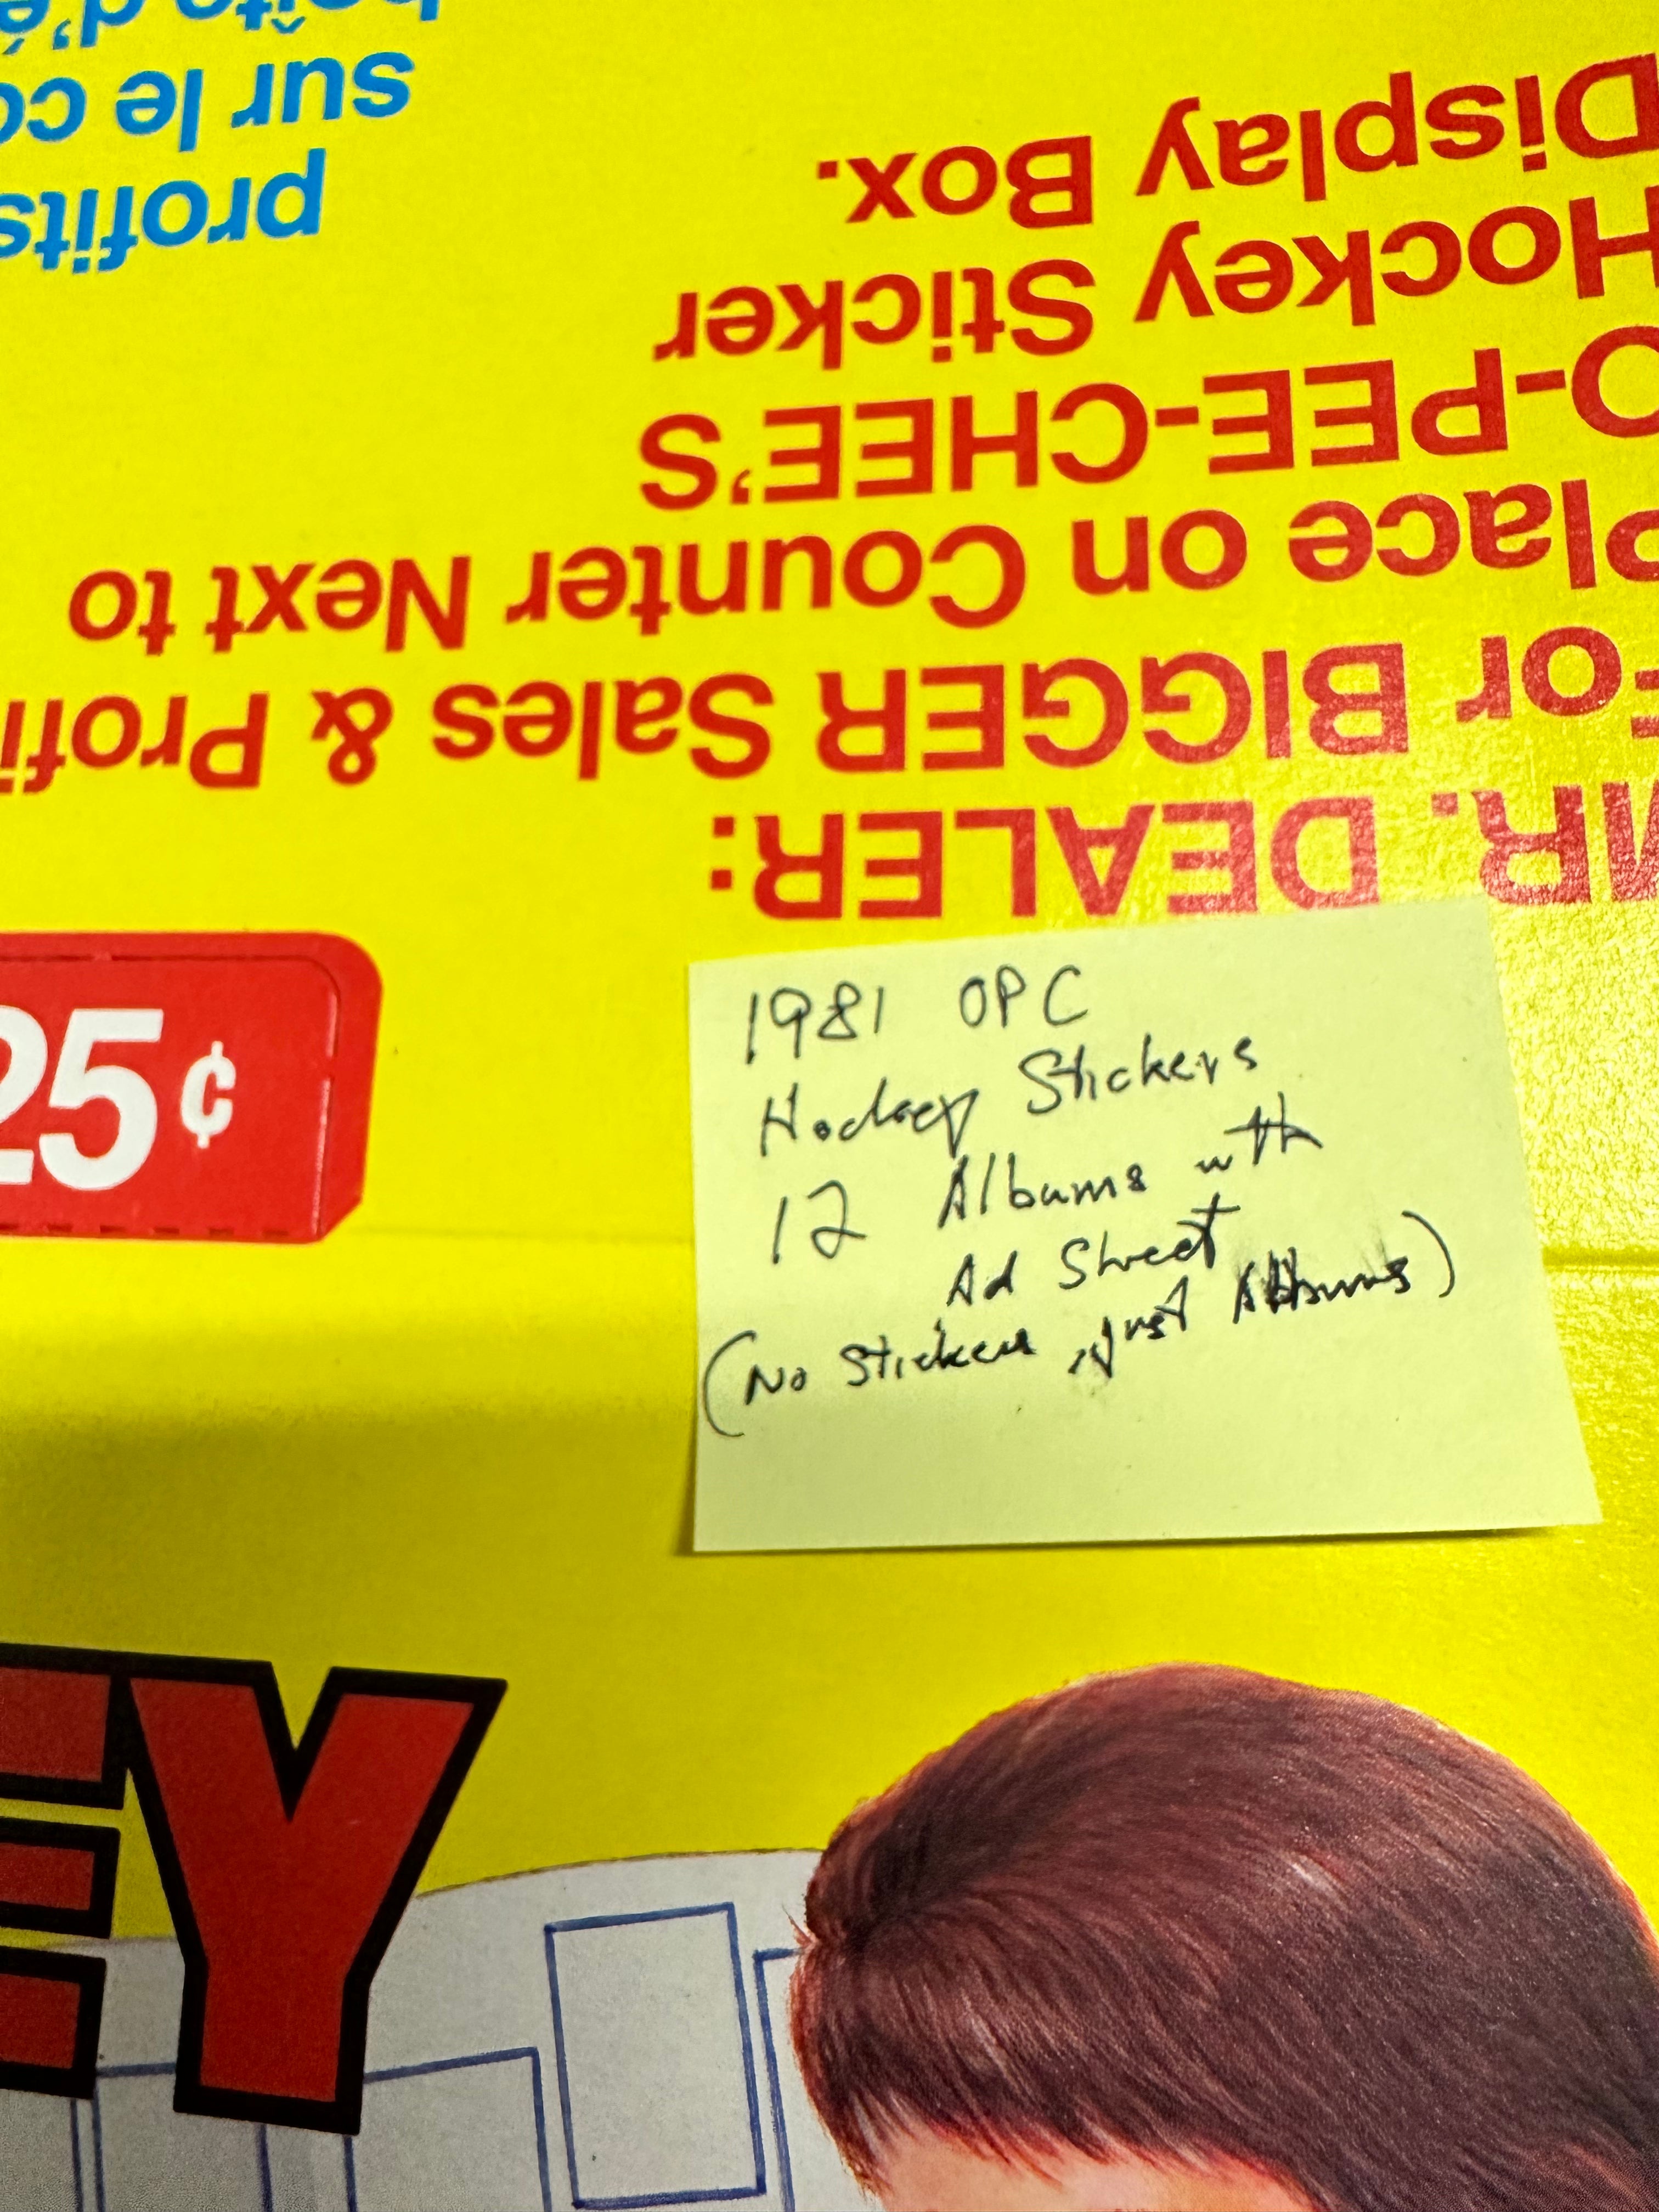 MR. DEALER:
For BIGGER Sales & Profi
Place on Counter Next to
O-PEE-CHEE'S
Hockey Sticker
Display Box.
profits
sur le co
boîte d'é
25¢
1981 OPC
Hockey Stickers
12 Albums with
Ad Sheet
(No Stickers, Just Albums)
EY